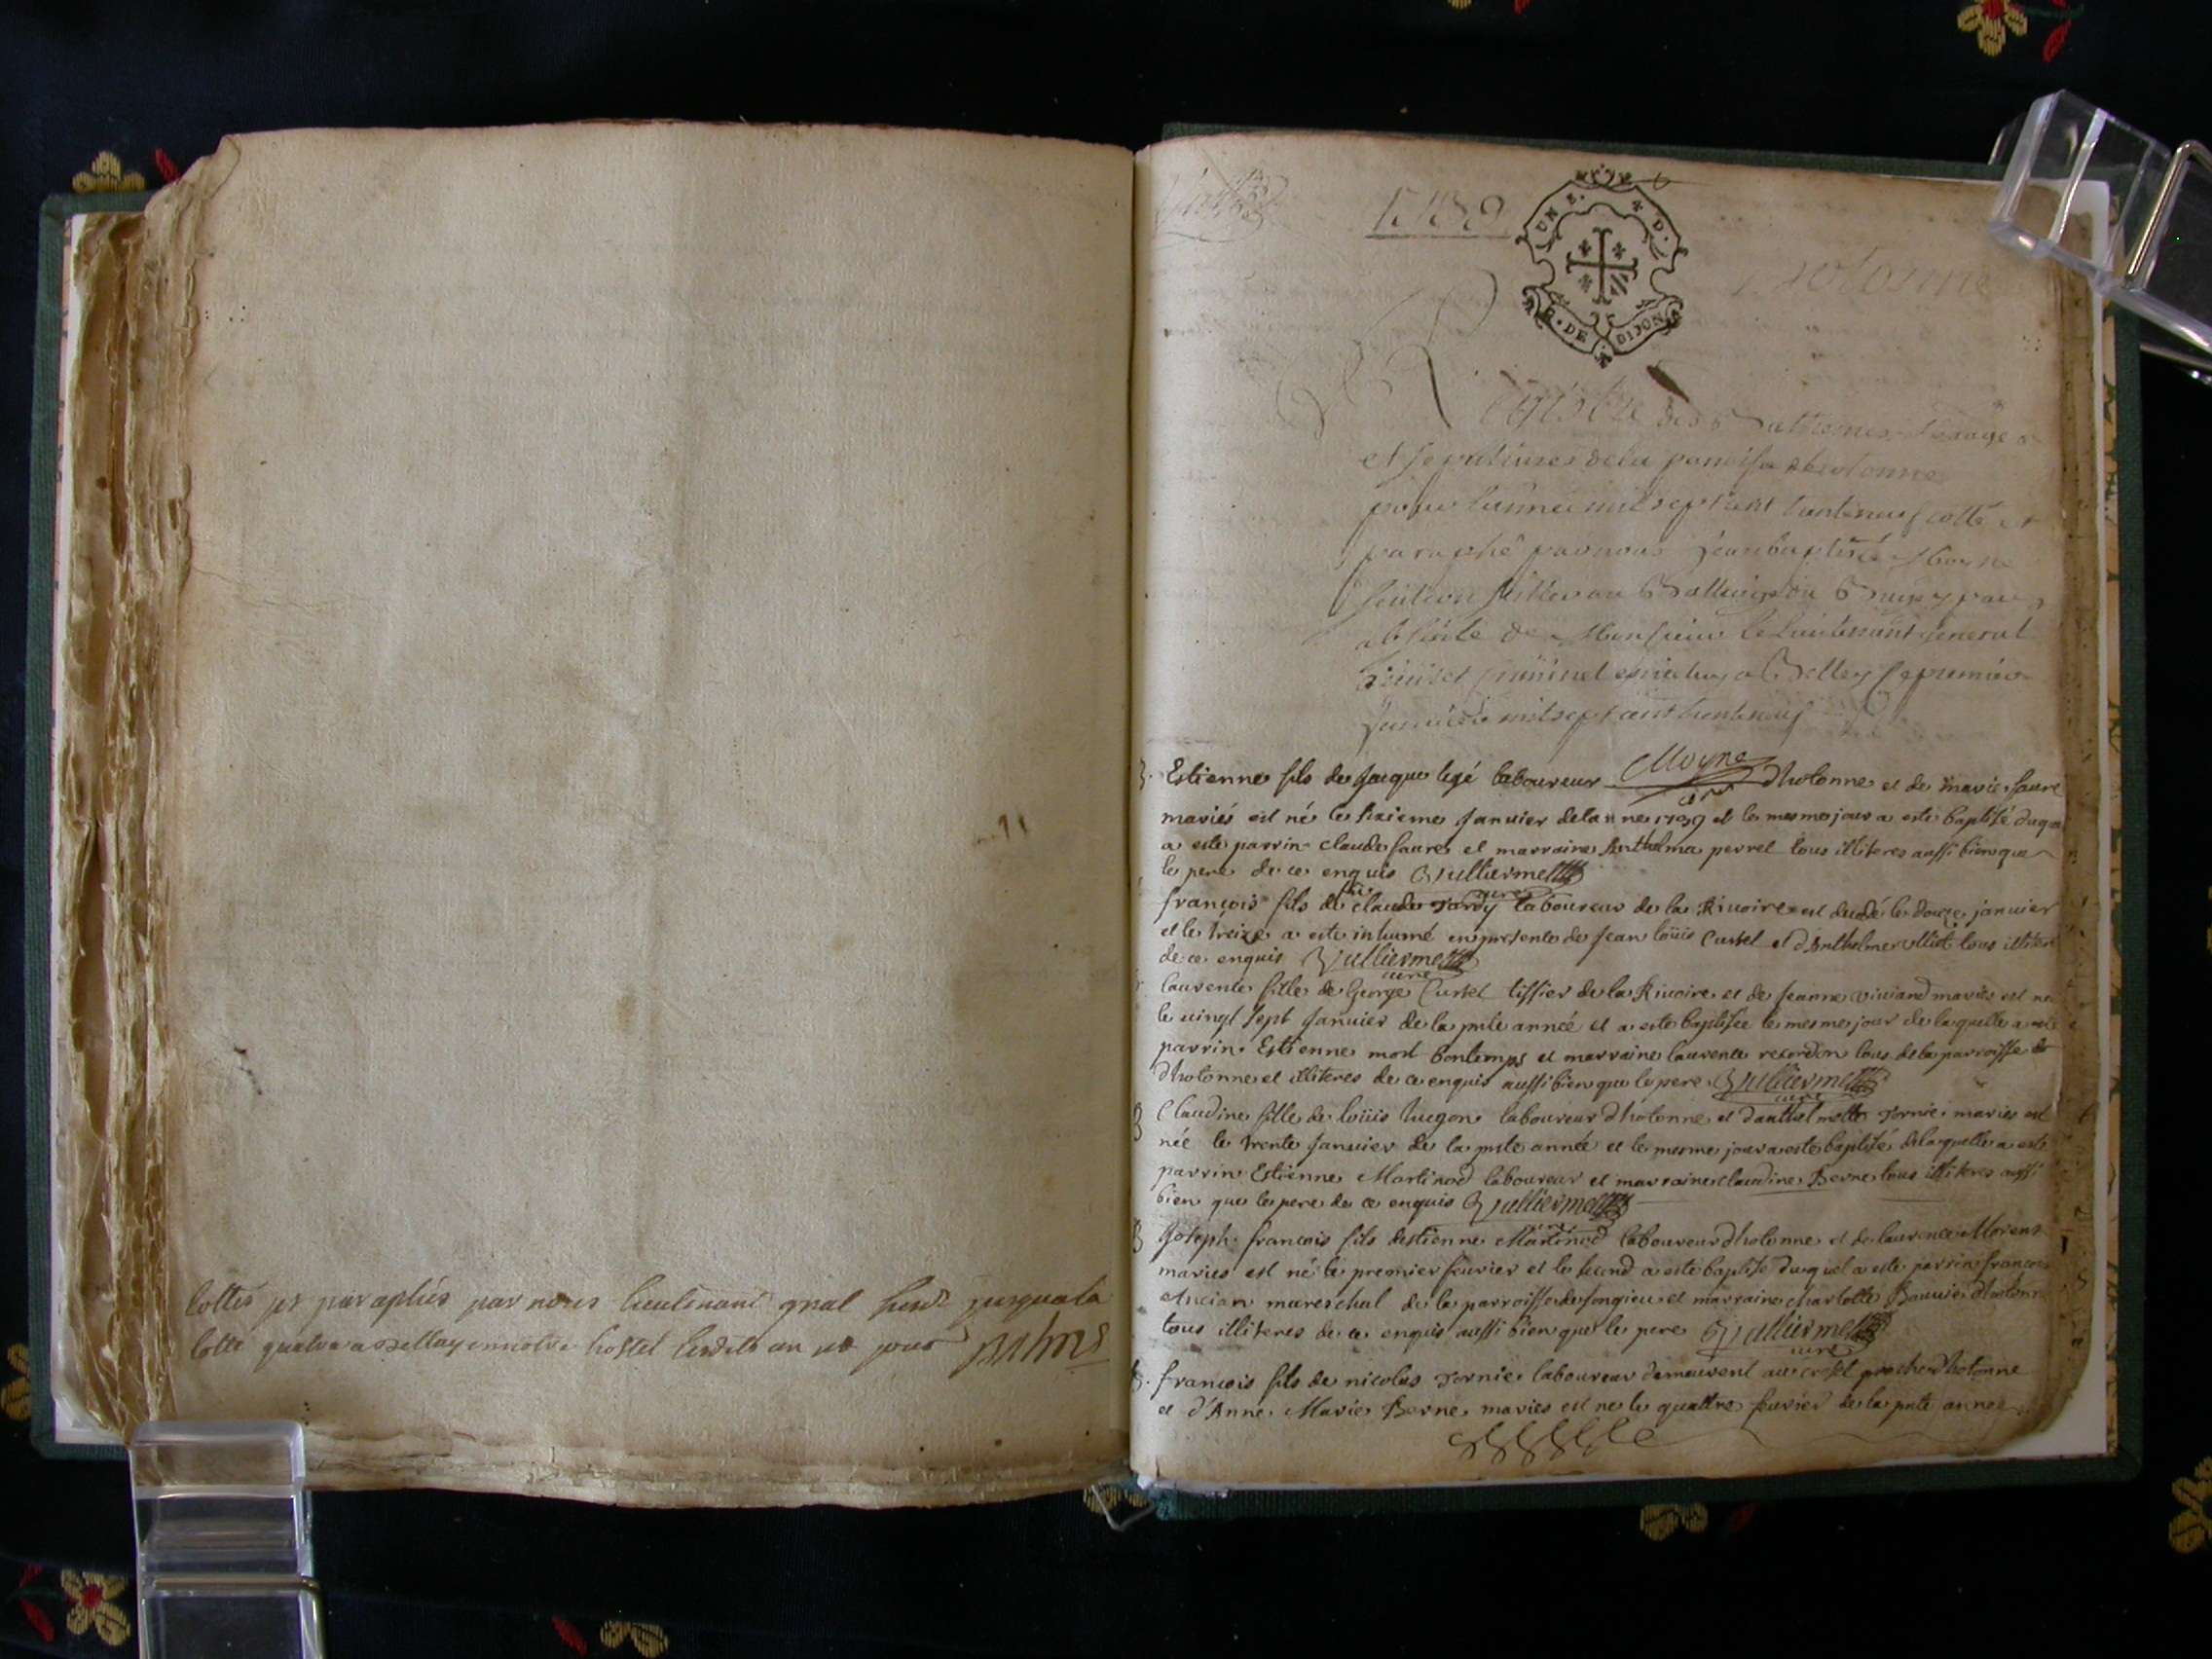 Cottés et paraphés par nous lieutenant gnal jusquala
cotte quatre a Belley en notre hostel lesdits an et jour
1739
UN S. D.
G. DE DIJON
hotonne
Registre des Battemes, Mariages
et sepultures de la paroisse dhotonne
pour l'année mil sept cent trenteneuf cotté et
paraphé par nous Jean baptiste Moyne
au Balliage du Bugey pour
absence de Monsieur le Lieutenant general
Civil et Criminel a Belley le premier
Janvier mil sept cent trenteneuf
Moyne
B. Estienne fils de Jacque legé laboureur dhotonne et de marie faure
mariés est né le sixieme Janvier de lanne 1739 et le mesme jour a esté baptisé duquel
a esté parrin claude faure et marraine Anthelma perret tous illiteres aussi bien que
le pere de ce enquis Vulliermet
curé
françois fils de claude Tardy laboureur de la Rivoire est decedé le douze janvier
et le treize a esté inhumé en presente de Jean loüis Curtet et d'Anthelme tous illiteres
de ce enquis Vulliermet
curé
laurente fille de George Curtet tissier de la Rivoire et de Jeanne viviand mariés est né
le vingt sept Janvier de la pnte année et a esté baptisée le mesme jour de laquelle a esté
parrin Estienne mort bontemps et marraine laurente recordon tous de la parroisse
dhotonne et illiteres de ce enquis aussi bien que le pere Vulliermet
curé
B Claudine fille de loüis hugon laboureur dhotonne et danthelmette Tornie mariés est
née le trente Janvier de la pnte année et le mesme jour a esté baptisé de laquelle a esté
parrin Estienne Martinod laboureur et marraine claudine Berne tous illiteres aussi
bien que le pere de ce enquis Vulliermet
curé
B Joseph francois fils destienne Martinod laboureur dhotonne et de laurence Morens
mariés est né le premier fevrier et le second a esté baptisé duquel a esté parrin francois
Ancian mareschal de la parroisse de songieu et marraine charlotte dhotonne
tous illiteres de ce enquis aussi bien que le pere Vulliermet
curé
B. francois fils de nicolas Tornie laboureur demeurent au proche dhotonne
et d'Anne Marie Berne mariés est né le quattre fevrier de la pnte année